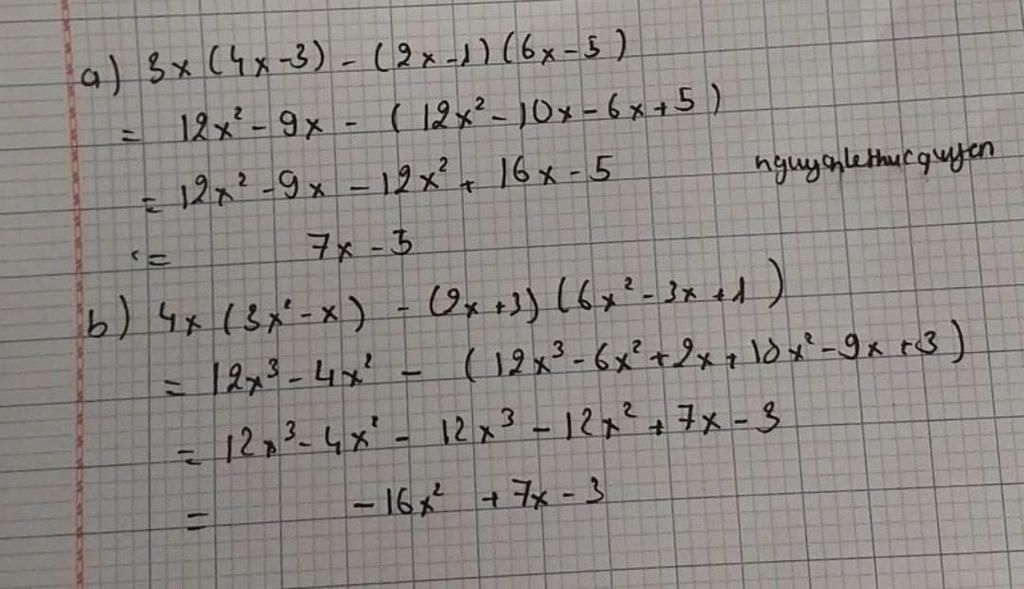 a) 3x (4x-3) - (2x-1) (6x-5)
= 12x² - 9x - ( 12x² - 10x - 6x + 5 )
= 12x² - 9x - 12x² + 16x - 5
nguyenlethucquyen
= 7x - 5
b) 4x (3x² - x) - (2x+3) (6x² - 3x + 1 )
= 12x³ - 4x² - ( 12x³ - 6x² + 2x + 18x² - 9x + 3 )
= 12x³ - 4x² - 12x³ - 12x² + 7x - 3
= -16x² + 7x - 3